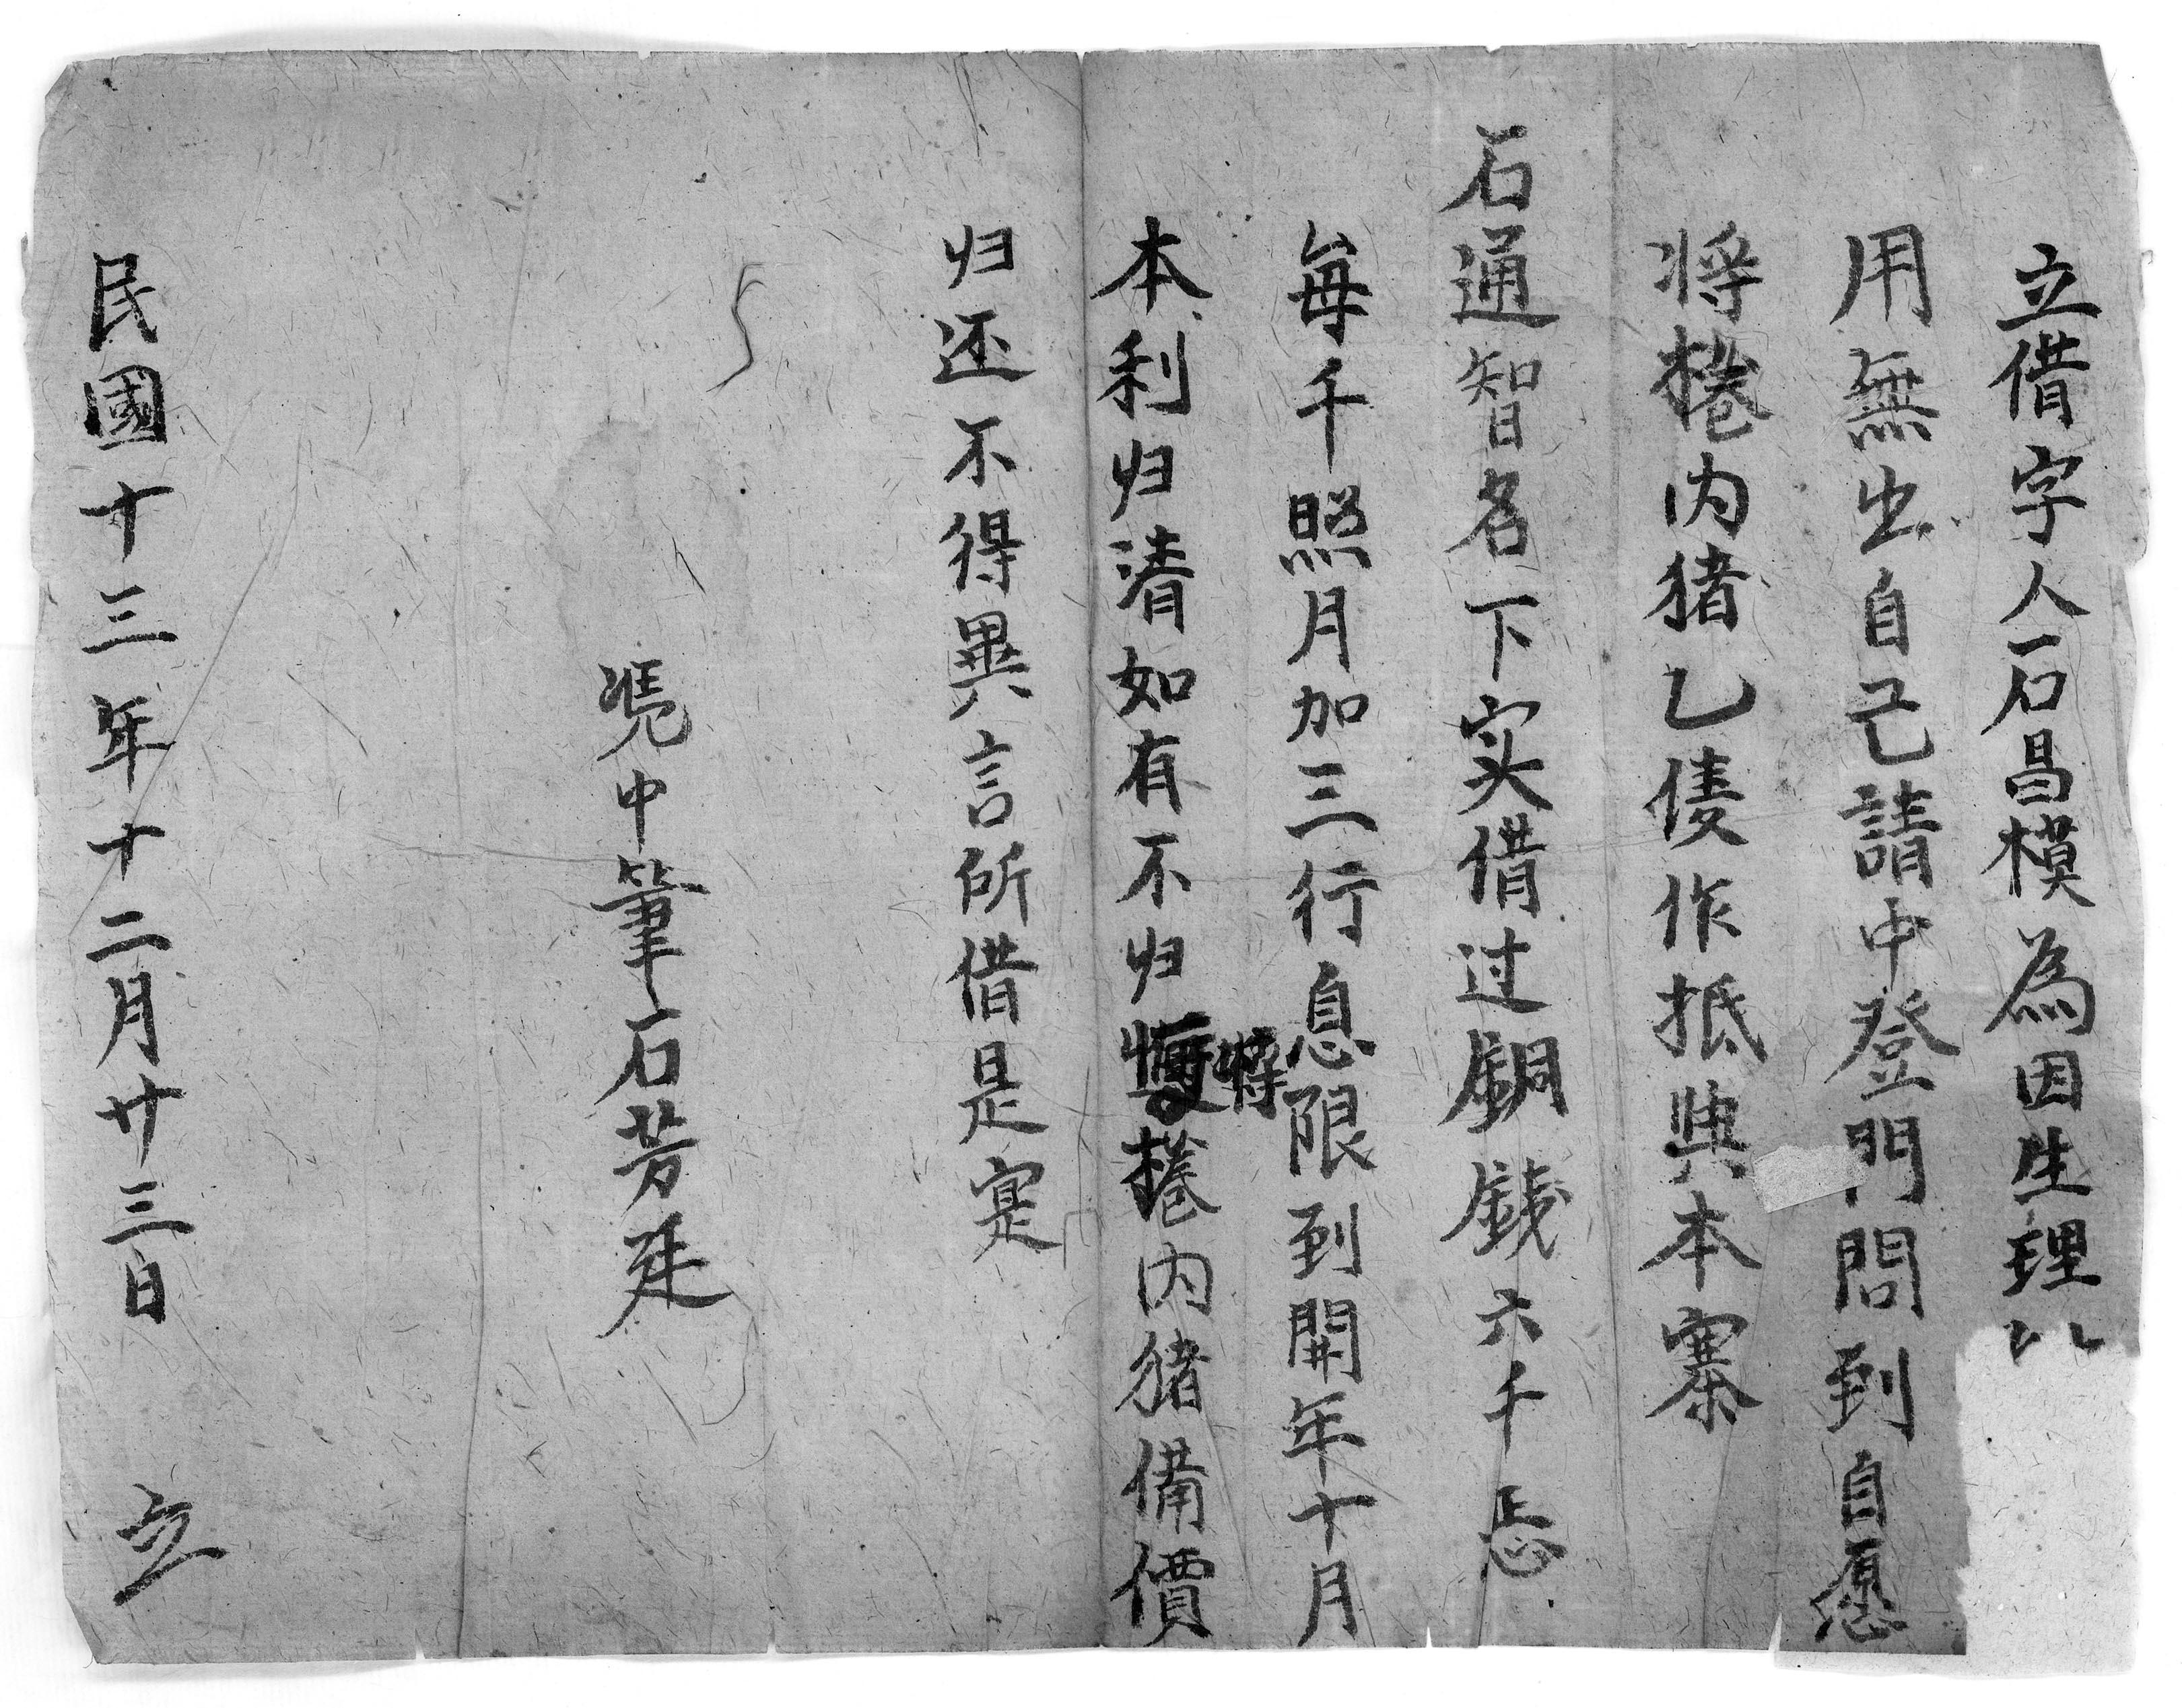 立借字人石昌模為因生理
用無出自己請中登門問到自愿
将棬内猪乙隻作抵典本寨
石通智名下实借过銅錢六千忘
每千照月加三行息限到開年十月
本利归清如有不归将棬内猪備價
归还不得異言所借是寔
凴中筆石芳廷
民國十三年十二月廿三日 立